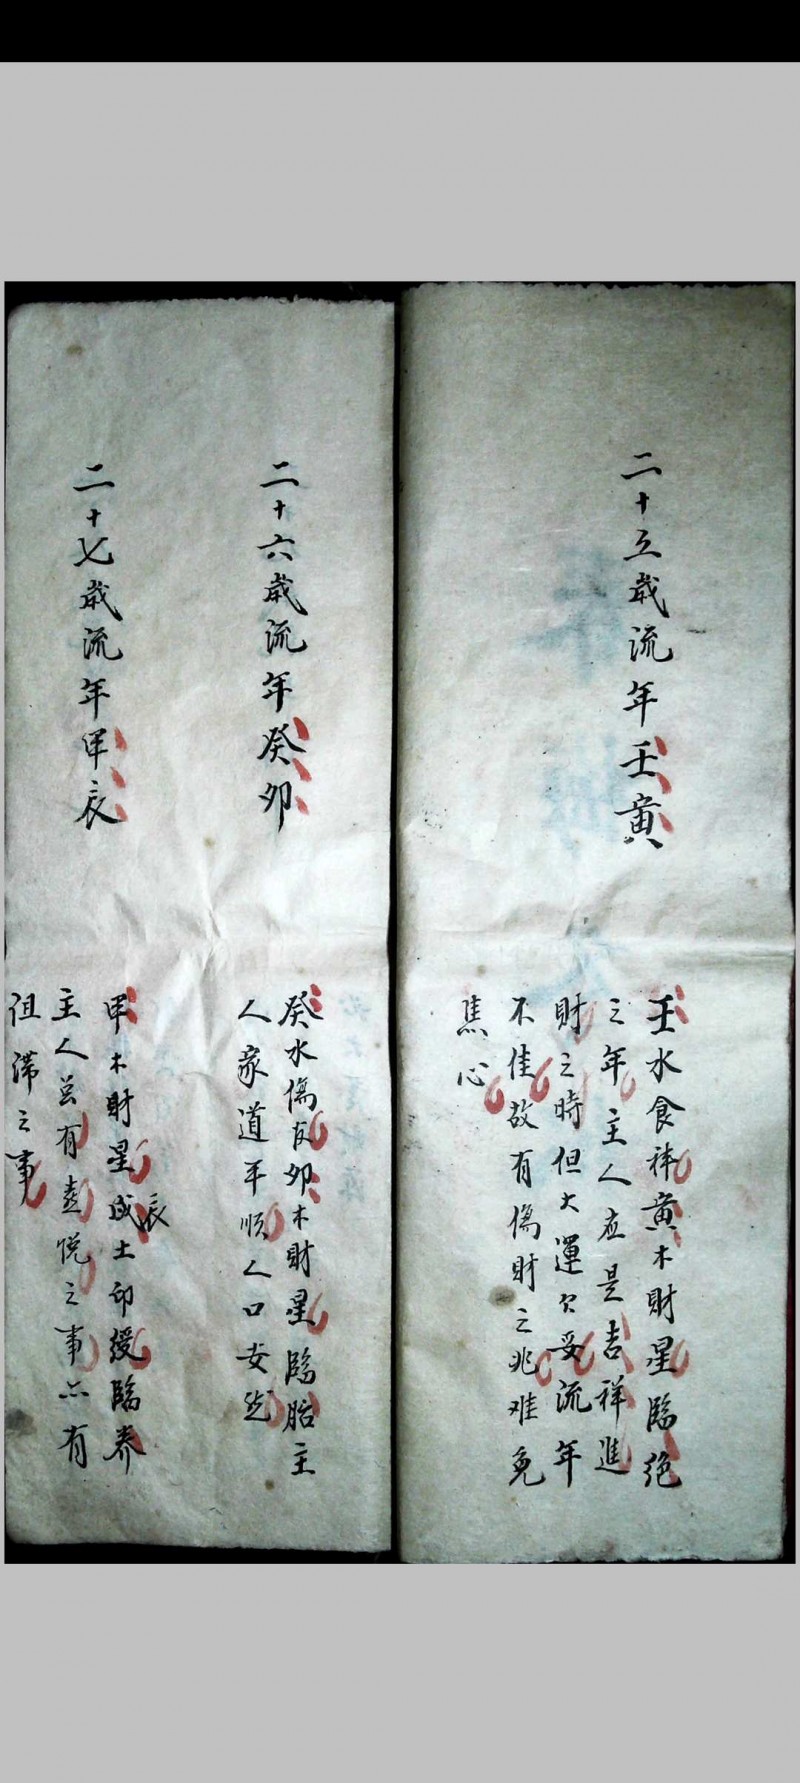 二十五歲流年壬寅
壬水食神寅木財星臨絕
之年主人應是吉祥進
財之時但大運欠妥流年
不佳故有傷財之兆难免
焦心
二十六歲流年癸卯
癸水傷官卯木財星臨胎主
人家道平順人口安然
二十七歲流年甲辰
甲木財星戌土印綬臨養
辰
主人总有喜悅之事亦有
阻滯之事